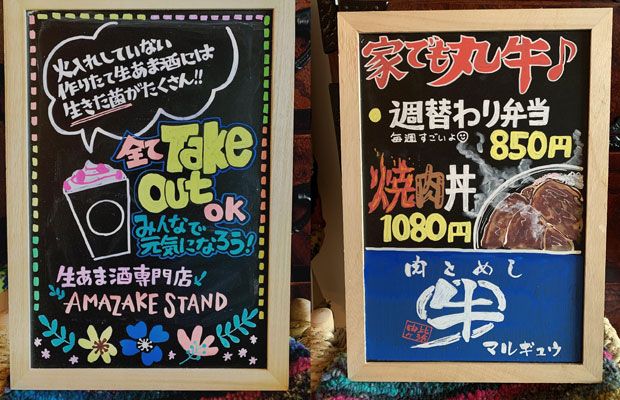 火入れしていない
作りたて生あま酒には
生きた菌がたくさん!!
全てTake
Out OK
みんなで
元気になろう!
生あま酒専門店
AMAZAKE STAND
家でも丸牛♪
週替わり弁当
毎週すごいよ
850円
焼肉丼
1080円
肉とめし
牛
マルギュウ